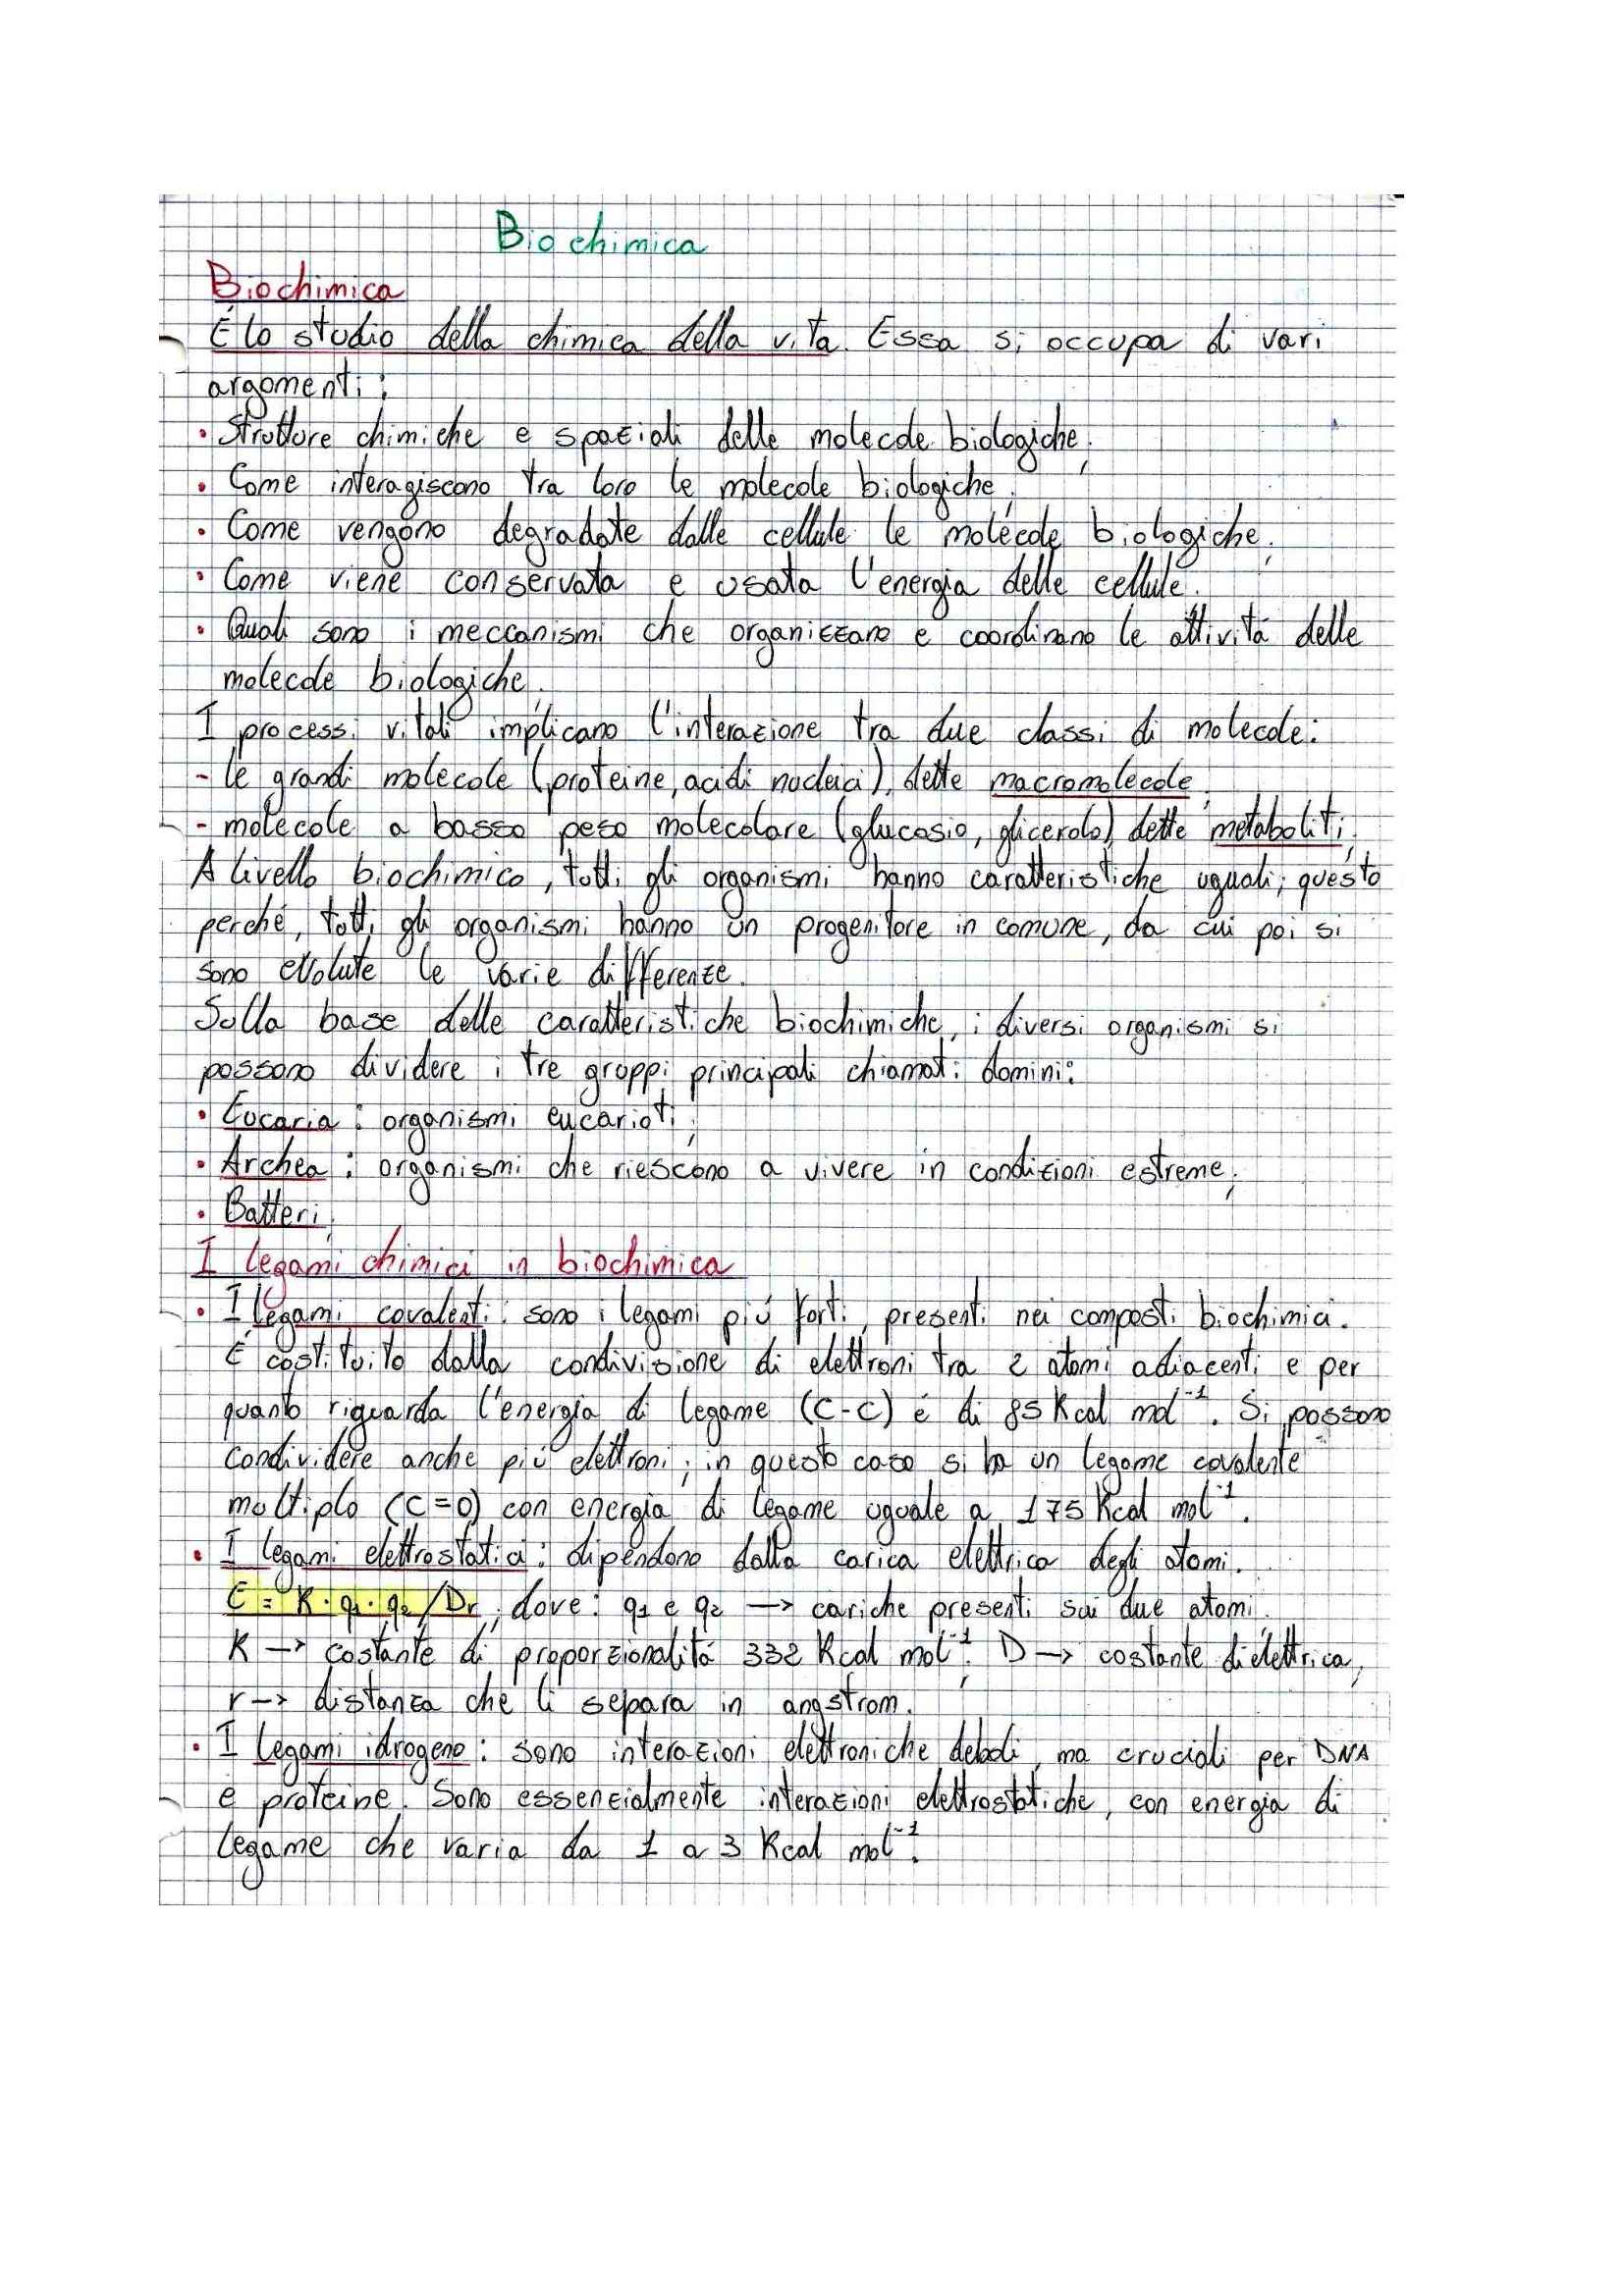 Biochimica
Biochimica
É lo studio della chimica della vita. Essa si occupa di vari
argomenti:
• Strutture chimiche e spaziali delle molecole biologiche;
• Come interagiscono tra loro le molecole biologiche;
• Come vengono degradate dalle cellule le molecole biologiche;
• Come viene conservata e usata l'energia delle cellule.
• Quali sono i meccanismi che organizzano e coordinano le attivitá delle
molecole biologiche.
I processi vitali implicano l'interazione tra due classi di molecole:
- le grandi molecole (proteine, acidi nucleici), dette macromolecole;
- molecole a basso peso molecolare (glucosio, glicerolo) dette metaboliti;
A livello biochimico, tutti gli organismi hanno caratteristiche uguali; questo
perché, tutti gli organismi hanno un progenitore in comune, da cui poi si
sono evolute le varie differenze.
Sulla base delle caratteristiche biochimiche, i diversi organismi si
possono dividere i tre gruppi principali chiamati domini:
• Eucaria: organismi eucarioti;
• Archea: organismi che riescono a vivere in condizioni estreme;
• Batteri;
I legami chimici in biochimica
• I legami covalenti: sono i legami piú forti, presenti nei composti biochimici.
É costituito dalla condivisione di elettroni tra 2 atomi adiacenti e per
quanto riguarda l'energia di legame (C-C) é di 85 Kcal mol⁻¹. Si possono
condividere anche piú elettroni; in questo caso si ha un legame covalente
multiplo (C=O) con energia di legame uguale a 175 Kcal mol⁻¹.
• I legami elettrostatici: dipendono dalla carica elettrica degli atomi.
E = K·q1·q2/Dr, dove: q1 e q2 → cariche presenti sui due atomi.
K → costante di proporzionalitá 332 Kcal mol⁻¹; D → costante dielettrica,
r → distanza che li separa in angstrom.
• I legami idrogeno: sono interazioni elettroniche deboli, ma cruciali per DNA
e proteine. Sono essenzialmente interazioni elettrostatiche, con energia di
legame che varia da 1 a 3 Kcal mol⁻¹.